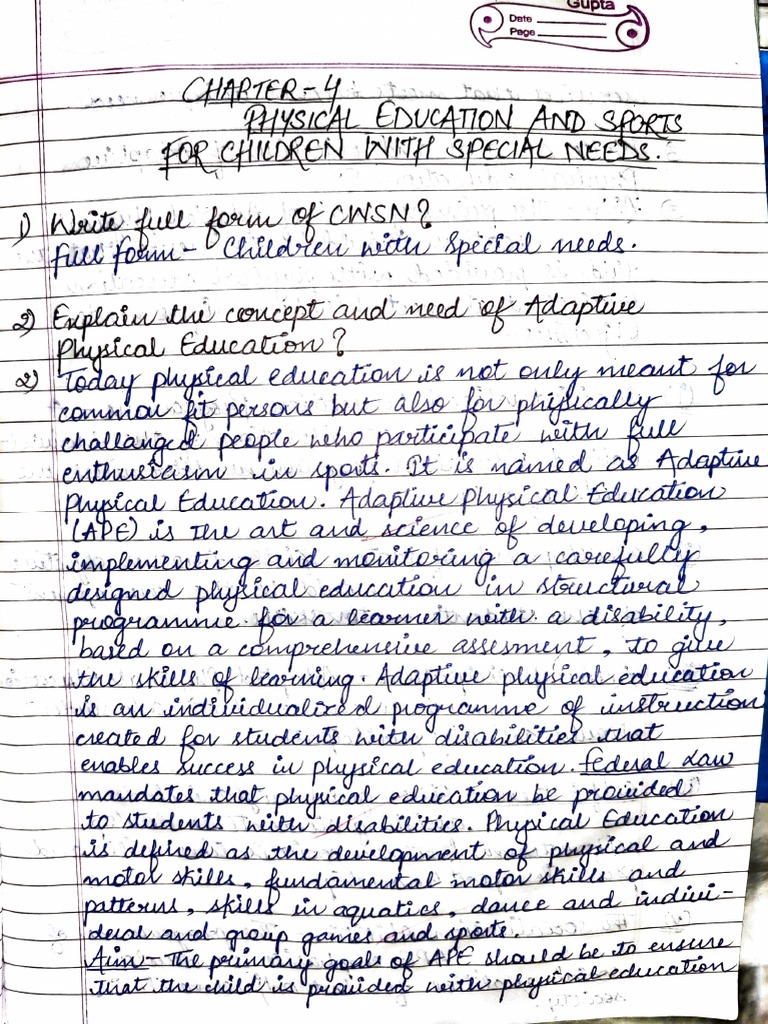 Gupta
Date
Page
CHAPTER-4
PHYSICAL EDUCATION AND SPORTS
FOR CHILDREN WITH SPECIAL NEEDS.
1) Write full form of CWSN?
Full form- Children with Special needs.
2) Explain the concept and need of Adaptive
Physical Education?
2) Today physical education is not only meant for
common fit persons but also for physically
challanged people who participate with full
enthusiasm in sports. It is named as Adaptive
Physical Education. Adaptive Physical Education
(APE) is the art and science of developing,
implementing and monitoring a carefully
designed physical education in structural
programme for a learner with a disability,
based on a comprehensive assesment, to give
the skills of learning. Adaptive physical education
is an individualized programme of instruction
created for students with disabilities that
enables success in physical education. Federal Law
mandates that physical education be provided
to students with disabilities. Physical Education
is defined as the development of physical and
motor skills, fundamental motor skills and
patterns, skills in aquatics, dance and indivi-
deual and group games and sports.
Aim- The primary goals of APE should be to ensure
that the child is provided with physical education